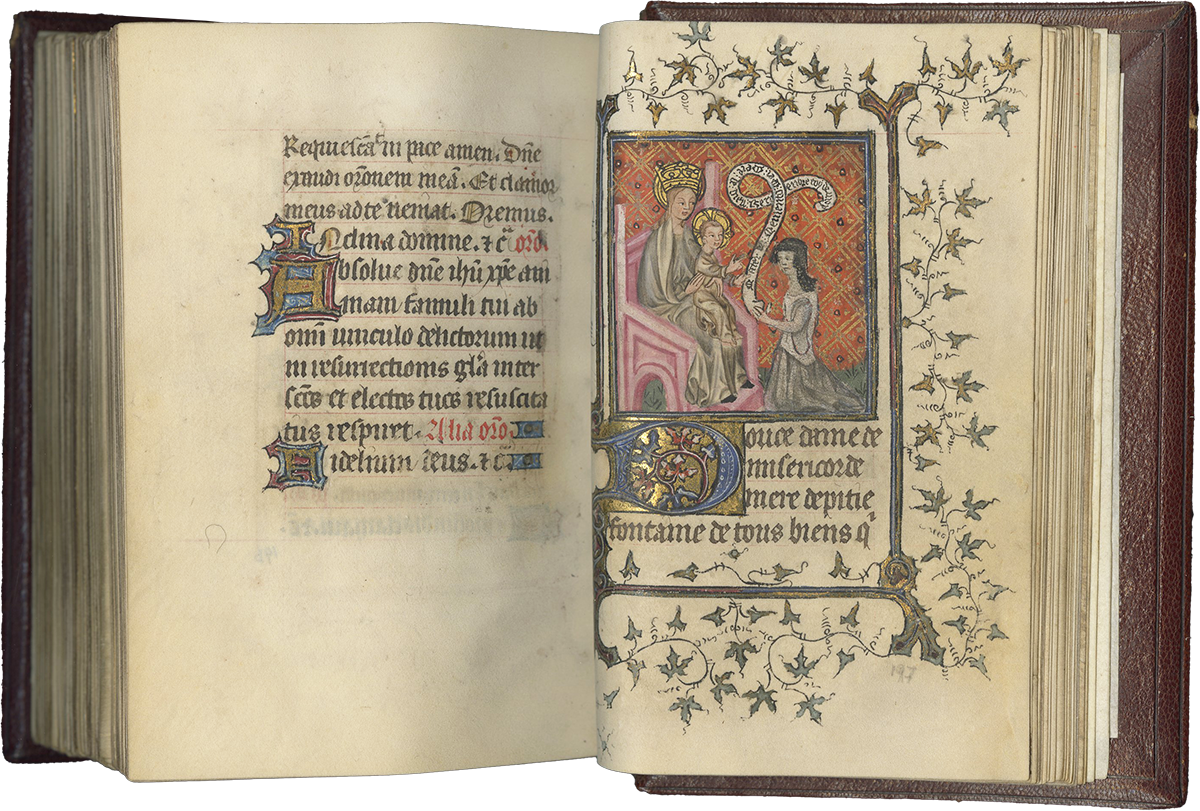 Requiescāt in pace amen. Dn̄e
exaudi orōnem meā. Et clamor
meus ad te veniat. Oremus.
Inclina domine. ⁊ c̄ orō
Absolue dn̄e ihū xp̄e am
mam famuli tui ab
omī vinculo delictorum ut
in resurrectionis gl̄a inter
sc̄os et electos tuos resuscita
tus respiret. Alia orō
Fidelium deus. ⁊ c̄
Douce dame de
misericorde
mere de pitie
fontaine de tous biens q̄
197